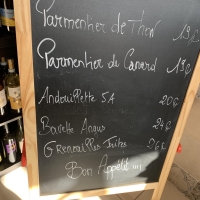 Parmentier de Thon 19€
Parmentier de Canard 19€
Andouillette 5A 20€
Bavette Angus 24€
Grenouilles Frites 26€
Bon Appétit